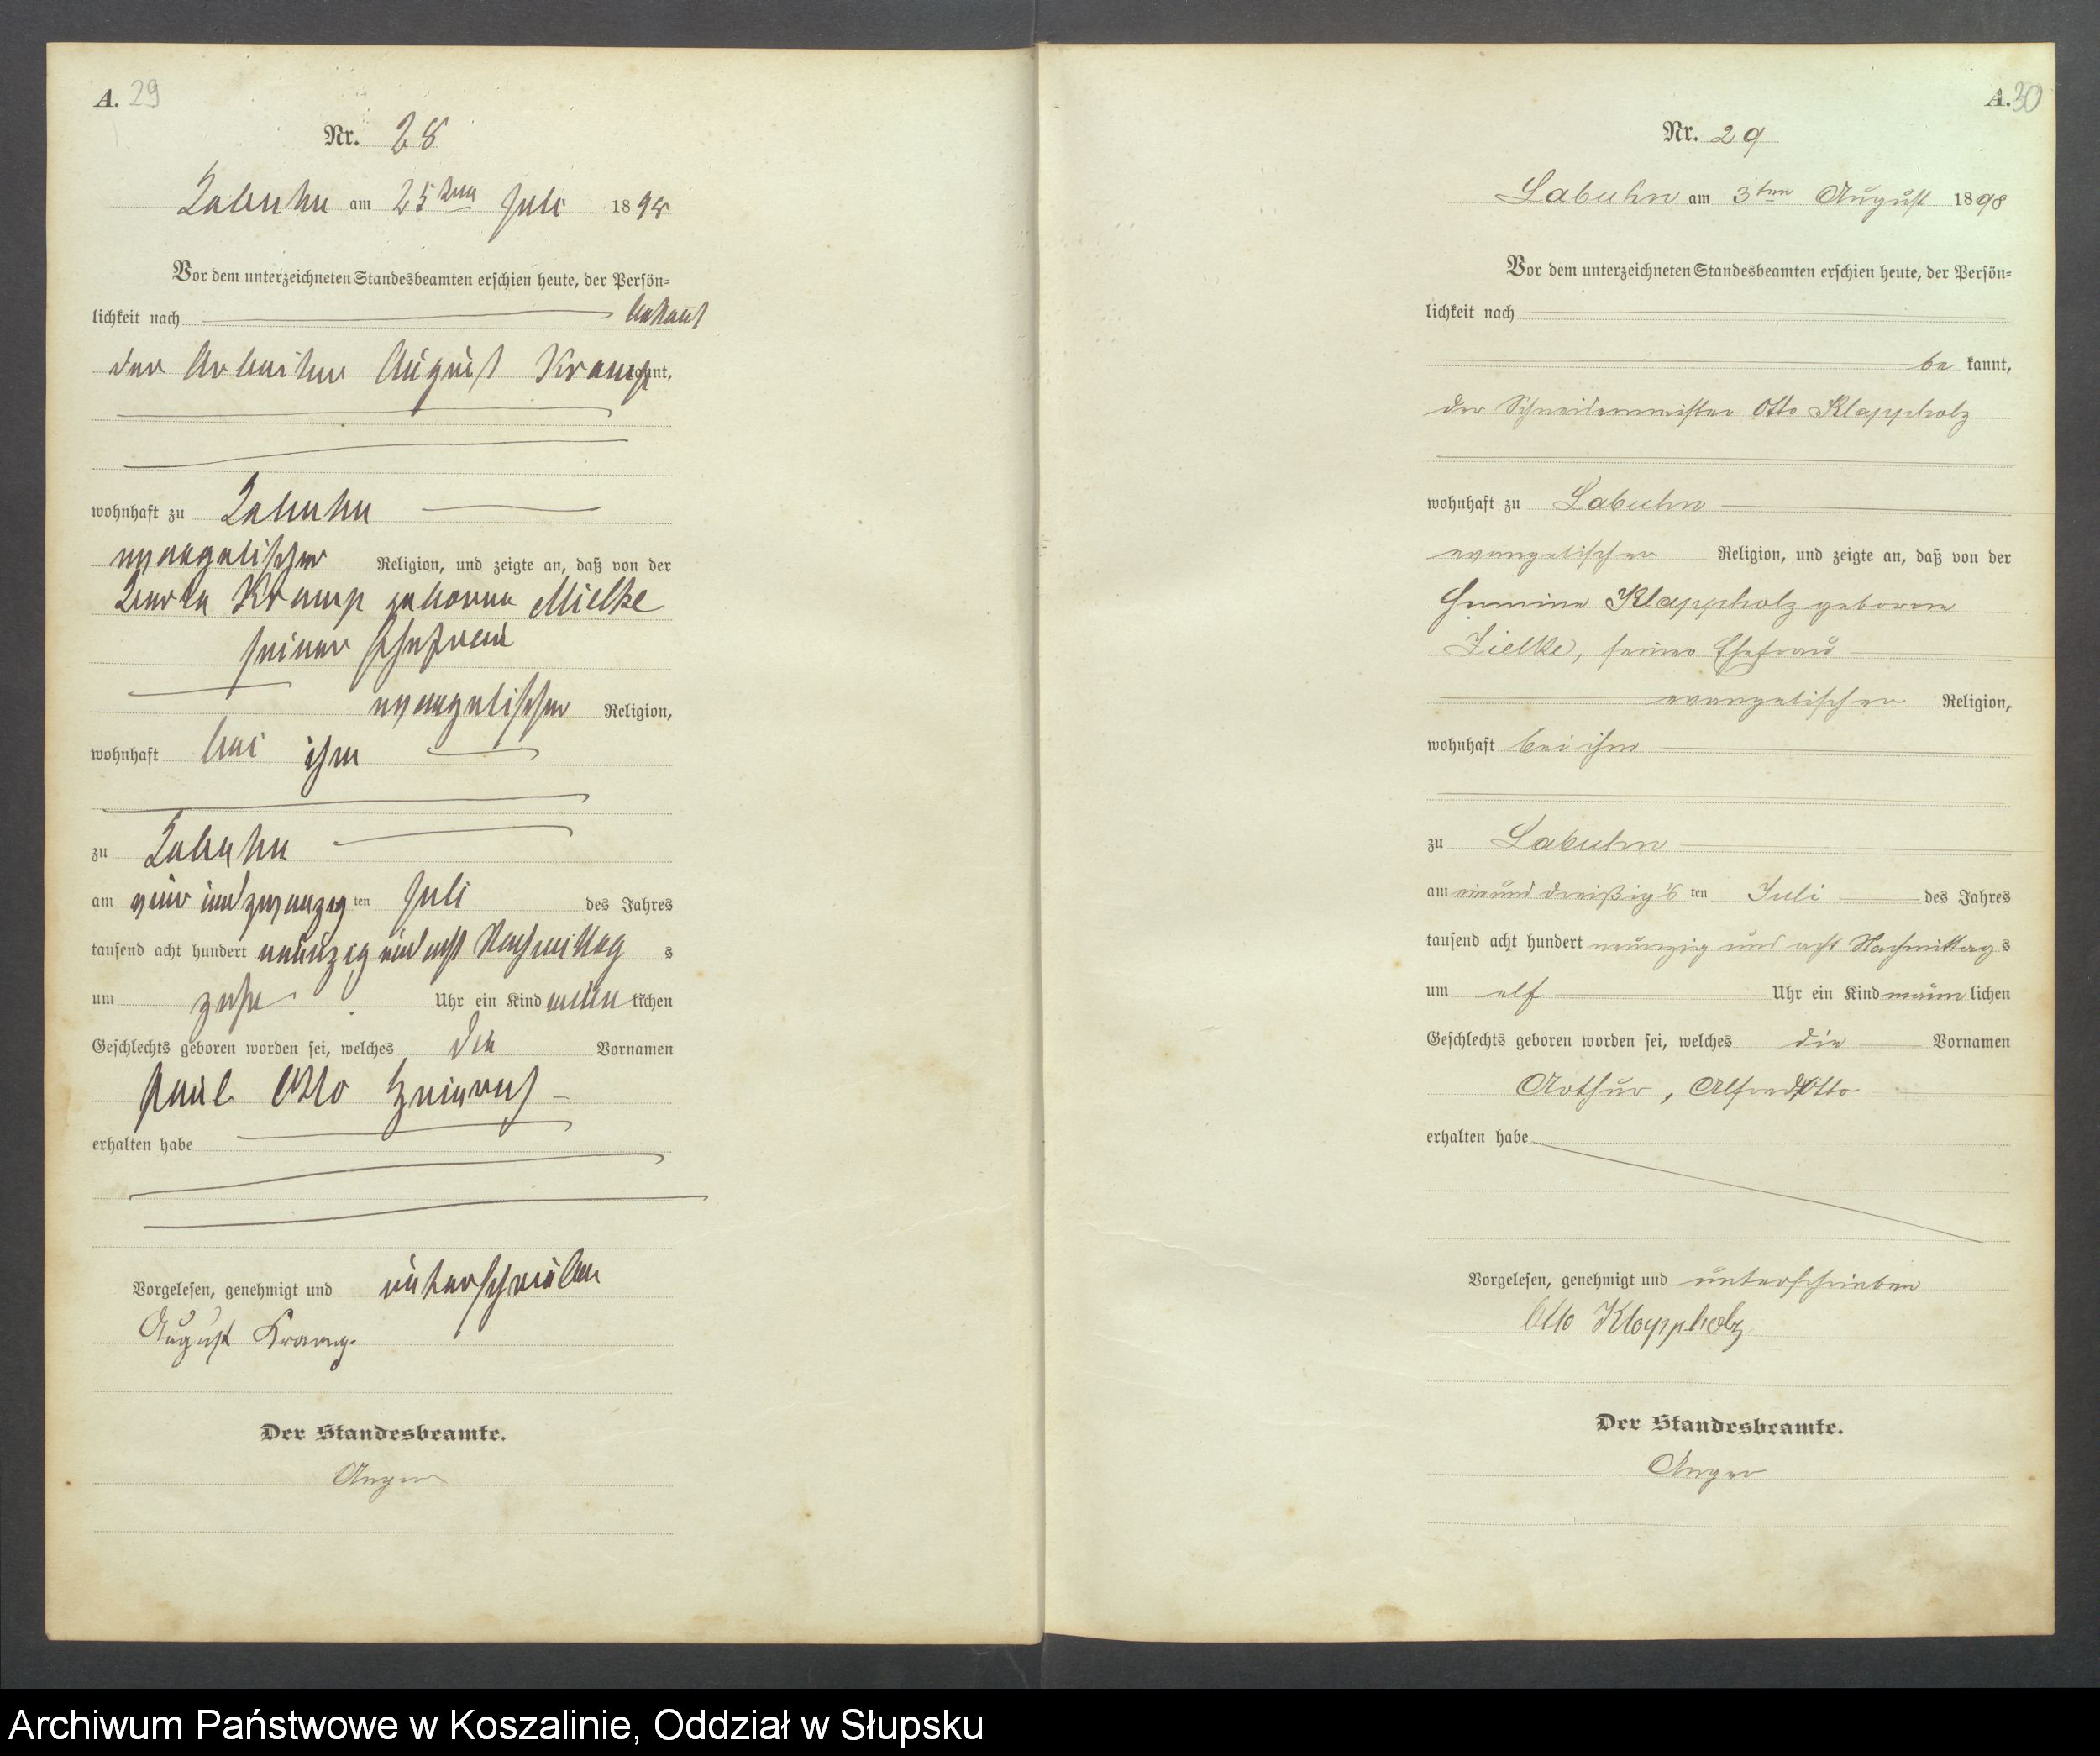 A. 29
Nr. 28
Labuhn am 25ten Juli 1898
Vor dem unterzeichneten Standesbeamten erschien heute, der Persön-
lichkeit nach bekannt
der Arbeiter August Kramp kannt,
wohnhaft zu Labuhn
evangelischer Religion, und zeigte an, daß von der
Kramp geborene Mielke
seiner Ehefrau
evangelischer Religion,
wohnhaft bei ihm
zu Labuhn
am vier und zwanzigten Juli des Jahres
tausend acht hundert neunzig und acht Nachmittags
um zehn Uhr ein Kind männlichen
Geschlechts geboren worden sei, welches die Vornamen
Paul Otto Heinrich
erhalten habe
Vorgelesen, genehmigt und unterschrieben
August Kramp.
Der Standesbeamte.
Anger
A. 30
Nr. 29
Labuhn am 3ten August 1898
Vor dem unterzeichneten Standesbeamten erschien heute, der Persön-
lichkeit nach
be kannt,
der Schneidermeister Otto Klappholz
wohnhaft zu Labuhn
evangelischer Religion, und zeigte an, daß von der
Hermine Klappholz geborene
Zielke, seiner Ehefrau
evangelischer Religion,
wohnhaft bei ihm
zu Labuhn
am ein und dreißigs ten Juli des Jahres
tausend acht hundert neunzig und acht Nachmittags
um elf Uhr ein Kind männlichen
Geschlechts geboren worden sei, welches die Vornamen
Arthur, Alfred, Otto
erhalten habe
Vorgelesen, genehmigt und unterschrieben
Otto Klappholz
Der Standesbeamte.
Anger
Archiwum Państwowe w Koszalinie, Oddział w Słupsku